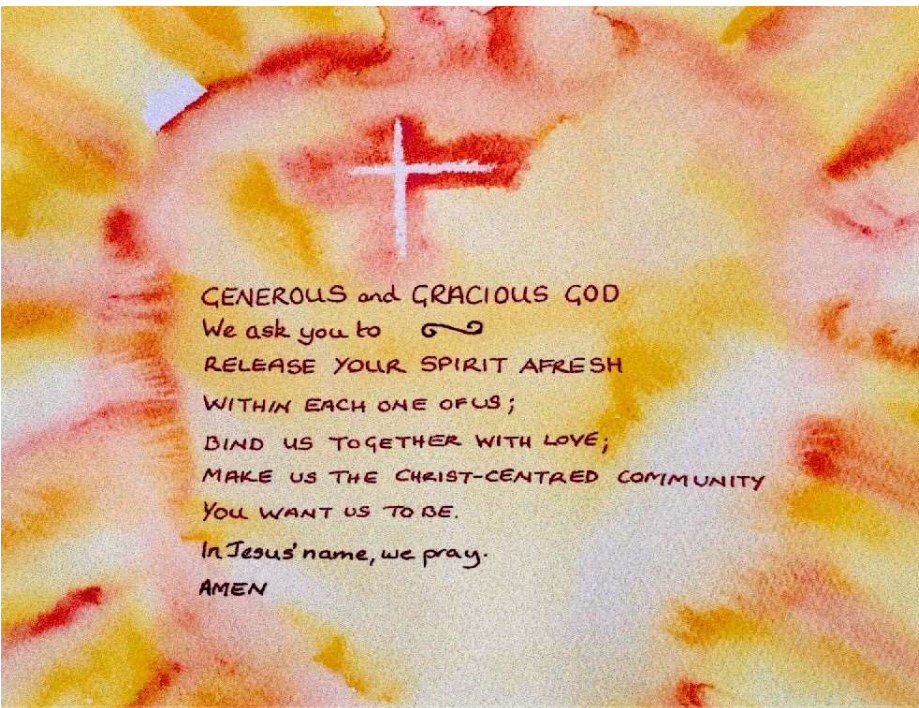 GENEROUS and GRACIOUS GOD
We ask you to
RELEASE YOUR SPIRIT AFRESH
WITHIN EACH ONE OF US;
BIND US TOGETHER WITH LOVE;
MAKE US THE CHRIST-CENTRED COMMUNITY
YOU WANT US TO BE.
In Jesus' name, we pray.
AMEN